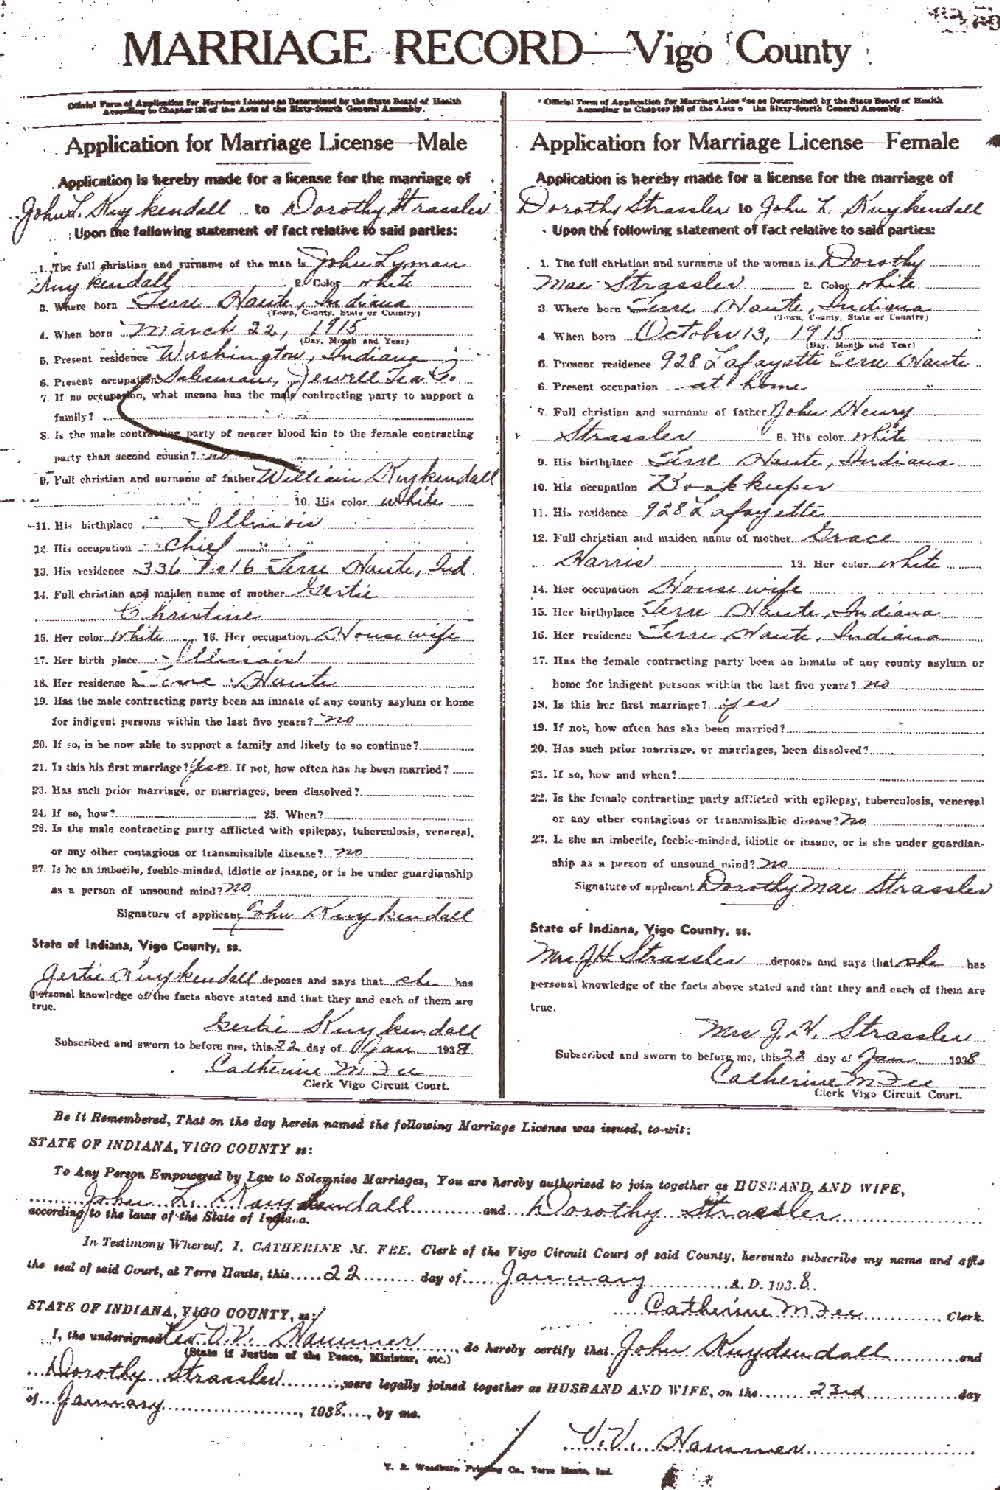 MARRIAGE RECORD—Vigo County
Official Form of Application for Marriage License as Determined by the State Board of Health
According to Chapter 126 of the Acts of the Sixty-fourth General Assembly.
Application for Marriage License—Male
Application is hereby made for a license for the marriage of
John L. Kuykendall to Dorothy Strassler
Upon the following statement of fact relative to said parties:
1. The full christian and surname of the man is John Lyman
Kuykendall 2. Color white
3. Where born Terre Haute, Indiana
(Town, County, State or Country)
4. When born March 22, 1915
(Day, Month and Year)
5. Present residence Washington, Indiana
6. Present occupation Salesman, Jewell Tea Co.
7. If no occupation, what means has the male contracting party to support a
family?
8. Is the male contracting party of nearer blood kin to the female contracting
party than second cousin? no
9. Full christian and surname of father William Kuykendall
10. His color white
11. His birthplace Illinois
12. His occupation Chief
13. His residence 336 No 16 Terre Haute, Ind
14. Full christian and maiden name of mother Gertie
Christine
15. Her color white 16. Her occupation Housewife
17. Her birth place Illinois
18. Her residence Terre Haute
19. Has the male contracting party been an inmate of any county asylum or home
for indigent persons within the last five years? no
20. If so, is he now able to support a family and likely to so continue?
21. Is this his first marriage? yes 22. If not, how often has he been married?
23. Has such prior marriage, or marriages, been dissolved?
24. If so, how? 25. When?
26. Is the male contracting party afflicted with epilepsy, tuberculosis, venereal,
or any other contagious or transmissible disease? no
27. Is he an imbecile, feeble-minded, idiotic or insane, or is he under guardianship
as a person of unsound mind? no
Signature of applicant John Kuykendall
State of Indiana, Vigo County, ss.
Gertie Kuykendall deposes and says that she has
personal knowledge of the facts above stated and that they and each of them are
true.
Gertie Kuykendall
Subscribed and sworn to before me, this 22 day of Jan 1938
Catherine M. Fee
Clerk Vigo Circuit Court.
Official Form of Application for Marriage License as Determined by the State Board of Health
According to Chapter 126 of the Acts o the Sixty-fourth General Assembly.
Application for Marriage License—Female
Application is hereby made for a license for the marriage of
Dorothy Strassler to John L. Kuykendall
Upon the following statement of fact relative to said parties:
1. The full christian and surname of the woman is Dorothy
Mae Strassler 2. Color white
3. Where born Terre Haute, Indiana
(Town, County, State or Country)
4. When born October 13, 1915
(Day, Month and Year)
5. Present residence 928 Lafayette Terre Haute
6. Present occupation at home
7. Full christian and surname of father John Henry
Strassler 8. His color white
9. His birthplace Terre Haute, Indiana
10. His occupation Bookkeeper
11. His residence 928 Lafayette
12. Full christian and maiden name of mother Grace
Harris 13. Her color white
14. Her occupation Housewife
15. Her birthplace Terre Haute, Indiana
16. Her residence Terre Haute, Indiana
17. Has the female contracting party been an inmate of any county asylum or
home for indigent persons within the last five years? no
18. Is this her first marriage? yes
19. If not, how often has she been married?
20. Has such prior marriage, or marriages, been dissolved?
21. If so, how and when?
22. Is the female contracting party afflicted with epilepsy, tuberculosis, venereal
or any other contagious or transmissible disease? no
23. Is she an imbecile, feeble-minded, idiotic or insane, or is she under guardian-
ship as a person of unsound mind? no
Signature of applicant Dorothy Mae Strassler
State of Indiana, Vigo County, ss.
Mrs J H Strassler deposes and says that she has
personal knowledge of the facts above stated and that they and each of them are
true.
Mrs J. H. Strassler
Subscribed and sworn to before me, this 22 day of Jan 1938
Catherine M. Fee
Clerk Vigo Circuit Court.
Be it Remembered, That on the day herein named the following Marriage License was issued, to-wit:
STATE OF INDIANA, VIGO COUNTY ss:
To Any Person Empowered by Law to Solemnise Marriages, You are hereby authorized to join together as HUSBAND AND WIFE,
John L. Kuykendall and Dorothy Strassler
according to the laws of the State of Indiana.
In Testimony Whereof, I, CATHERINE M. FEE, Clerk of the Vigo Circuit Court of said County, hereunto subscribe my name and affix
the seal of said Court, at Terre Haute, this 22 day of January A. D. 1938
Catherine M. Fee Clerk.
STATE OF INDIANA, VIGO COUNTY, ss:
I, the undersigned Rev. V. V. Hammer do hereby certify that John Kuydendall and
(State if Justice of the Peace, Minister, etc.)
Dorothy Strassler were legally joined together as HUSBAND AND WIFE, on the 23rd day
of January, 1938, by me.
V. V. Hammer
T. R. Woodburn Printing Co., Terre Haute, Ind.